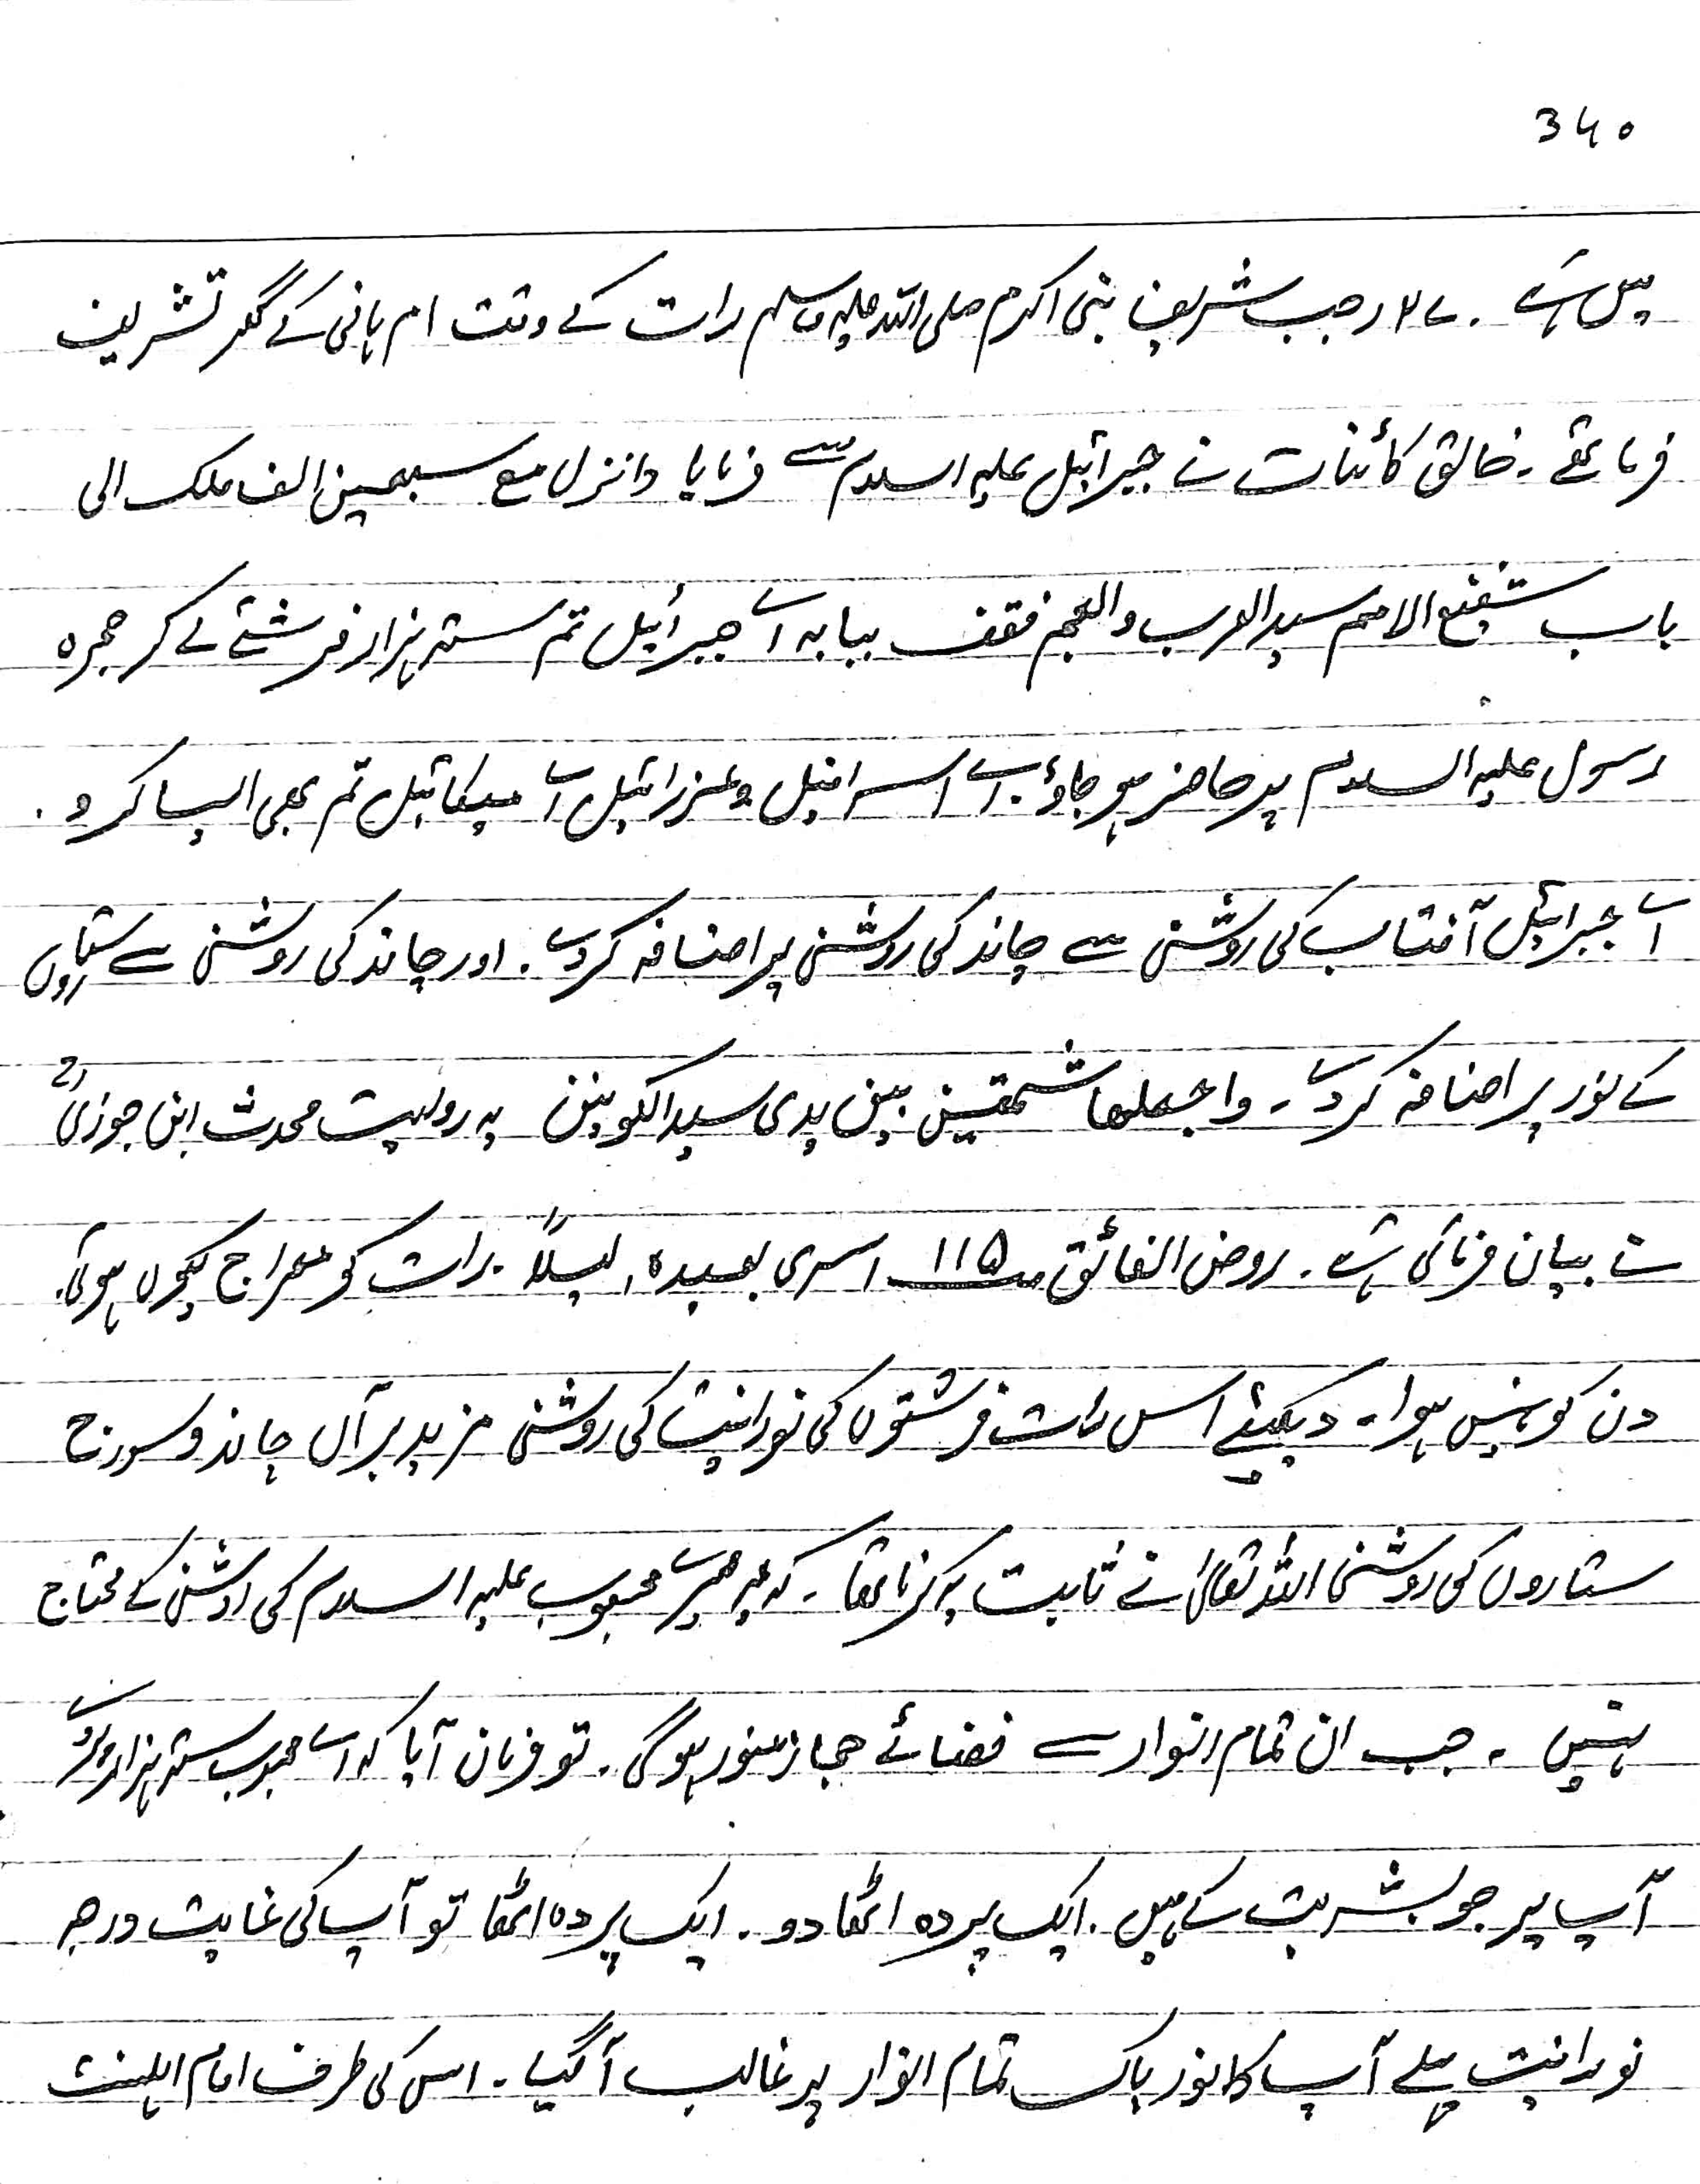 340
میں ہے۔ ۲۷ رجب شریف نبی اکرم صلی اللہ علیہ وسلم رات کے وقت ام ہانی کے گھر تشریف
فرما تھے۔ خالق کائنات نے جبرائیل علیہ السلام سے فرمایا وانزل مع سبعین الف ملک الی
باب شفیع الامم سید العرب والعجم فقف ببابہ اے جبرائیل تم ستر ہزار فرشتے لے کر حجرہ
رسول علیہ السلام پر حاضر ہو جاؤ۔ اے اسرافیل و عزرائیل اے میکائیل تم بھی ایسا کرو۔
اے جبرائیل آفتاب کی روشنی سے چاند کی روشنی پر اضافہ کر دے۔ اور چاند کی روشنی سے ستاروں
کے نور پر اضافہ کر دے۔ واجعلھا شمعتین بین یدی سید الکونین یہ روایت محدث ابن جوزیؒ
نے بیان فرمائی ہے۔ روض الفائق صـ۱۱۵ اسری بعبدہ لیلاً۔ رات کو معراج کیوں ہوئی۔
دن کو نہیں ہوا۔ دیکھئے اس رات فرشتوں کی نورانیت کی روشنی مزید برآں چاند و سورج
ستاروں کی روشنی اللہ تعالیٰ نے ثابت یہ کرنا تھا۔ کہ یہ میرے محبوب علیہ السلام کی روشنی کے محتاج
ہیں۔ جب ان تمام انوار سے فضائے حجاز منور ہو گی۔ تو فرمان آیا کہ اے محبوب ستر ہزار پردے
آپ پر جو بشریت کے ہیں۔ ایک پردہ اٹھا دو۔ ایک پردہ اٹھا تو آپ کی غایت درجہ
نورانیت پہلے آپ کا نور پاک تمام انوار پر غالب آ گیا۔ اس کی طرف امام اہلسنت